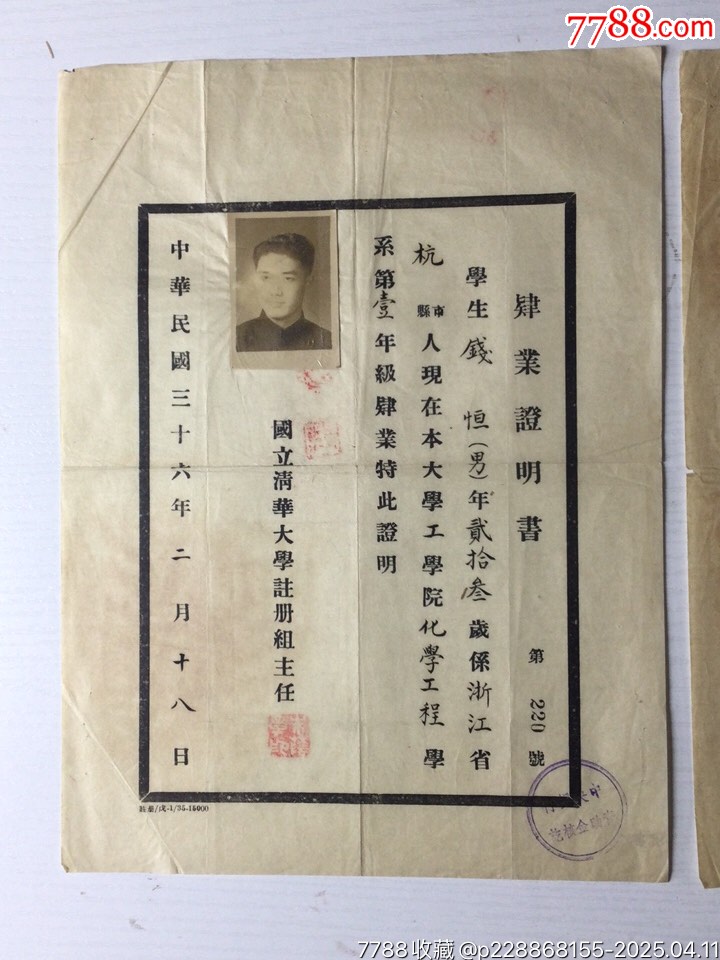 7788.com
肄業證明書
第220號
學生錢恒(男)年貳拾叁歲係浙江省
杭市縣人現在本大學工學院化學工程學
系第壹年級肄業特此證明
國立清華大學註册組主任
中華民國三十六年二月十八日
7788收藏@p228868155-2025.04.11